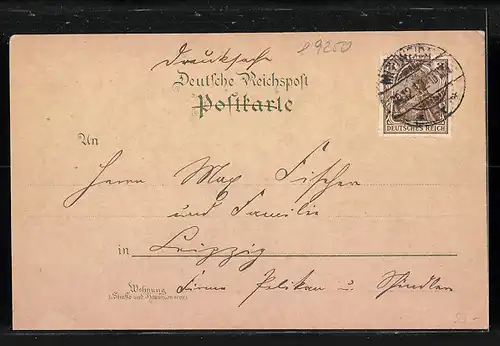 Drucksache
e 9250
Deutsche Reichspost
Postkarte
DEUTSCHES REICH
An
Herrn Max Fischer
und Familie
in Leipzig
Wohnung
Firma Pelikan u. Schindler
(Straße und Hausnummer)